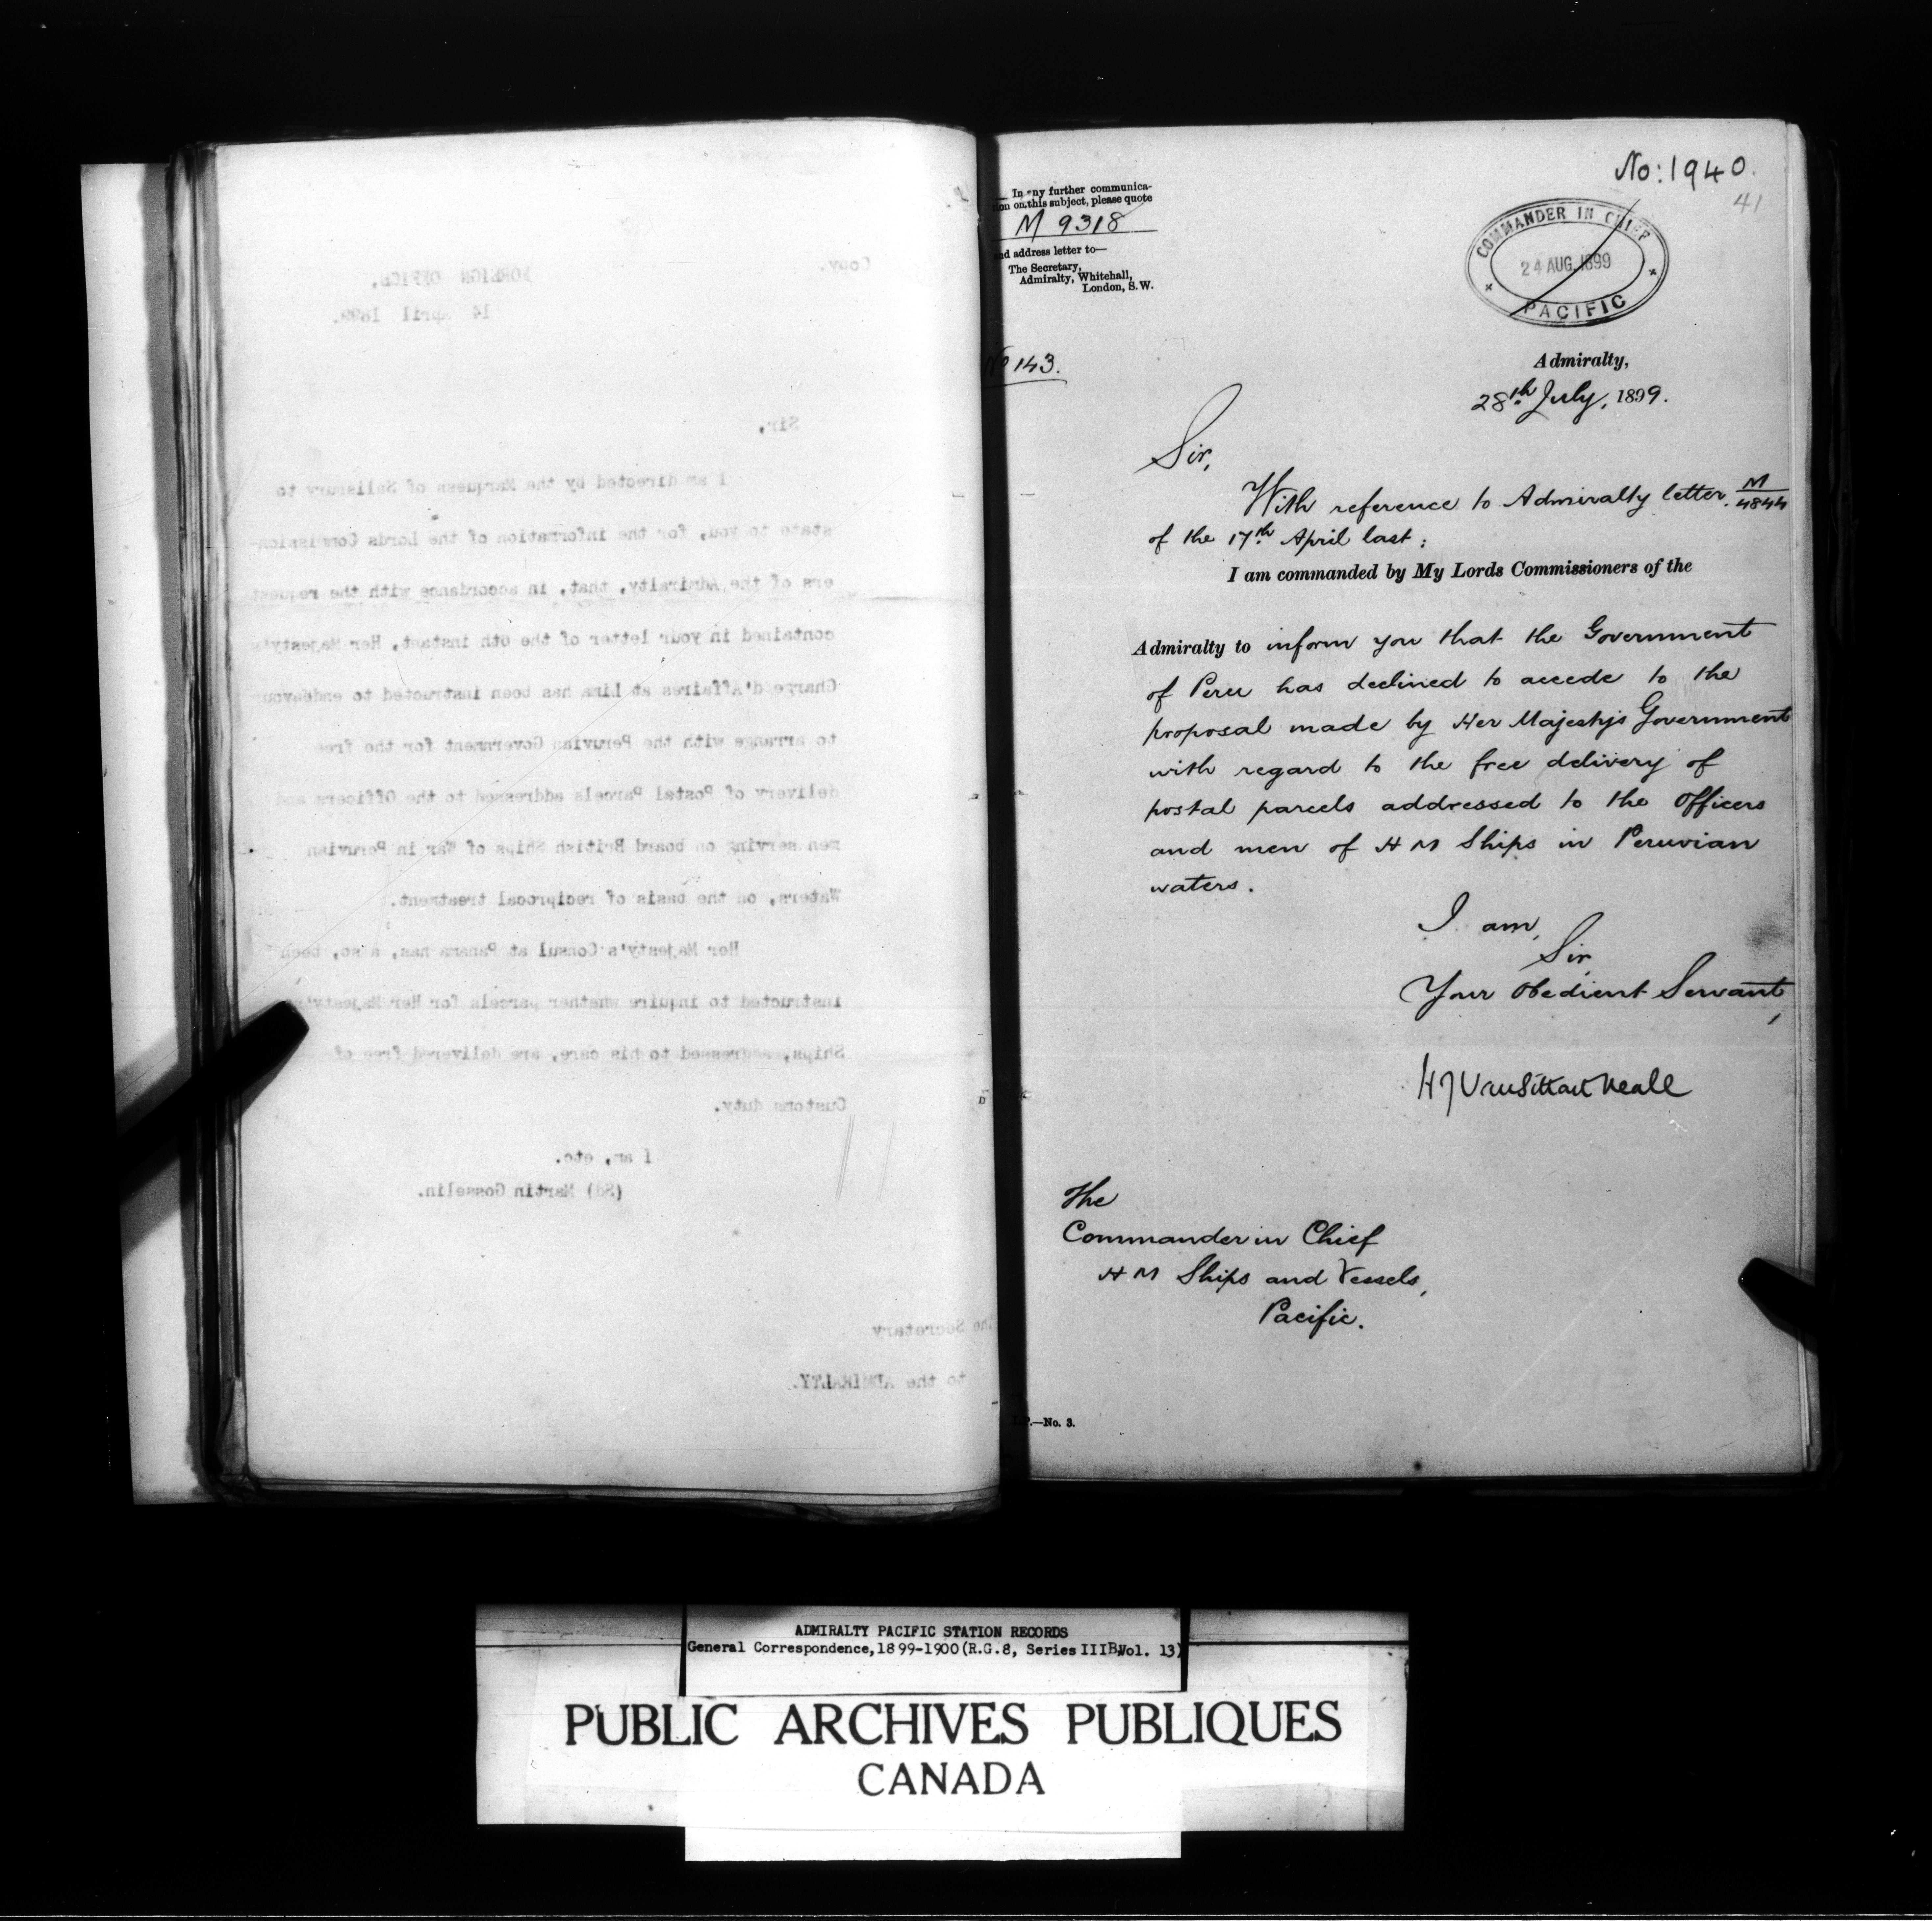 Copy.
FOREIGN OFFICE,
14 April 1899.
Sir,
I am directed by the Marquess of Salisbury to
state to you, for the information of the Lords Commission-
ers of the Admiralty, that, in accordance with the request
contained in your letter of the 6th instant, Her Majesty's
Chargé d'Affaires at Lima has been instructed to endeavour
to arrange with the Peruvian Government for the free
delivery of Postal Parcels addressed to the Officers and
men serving on board British Ships of War in Peruvian
Waters, on the basis of reciprocal treatment.
Her Majesty's Consul at Panama has, also, been
instructed to inquire whether parcels for Her Majesty's
Ships, addressed to his care, are delivered free of
Customs duty.
I am, etc.
(Sd) Martin Gosselin.
The Secretary
to the ADMIRALTY.
No: 1940.
41
In any further communica-
tion on this subject, please quote
M 9318
and address letter to—
The Secretary,
Admiralty, Whitehall,
London, S.W.
COMMANDER IN CHIEF
24 AUG. 1899
PACIFIC
No 143.
Admiralty,
28th July, 1899.
Sir,
With reference to Admiralty letter. M/4844
of the 17th April last:
I am commanded by My Lords Commissioners of the
Admiralty to inform you that the Government
of Peru has declined to accede to the
proposal made by Her Majesty's Government
with regard to the free delivery of
postal parcels addressed to the Officers
and men of H M Ships in Peruvian
waters.
I am,
Sir,
Your Obedient Servant,
H J Vansittart Neale
The
Commander in Chief
H M Ships and Vessels,
Pacific.
P.—No. 3.
ADMIRALTY PACIFIC STATION RECORDS
General Correspondence, 1899-1900 (R.G.8, Series IIIB, Vol. 13)
PUBLIC ARCHIVES PUBLIQUES
CANADA